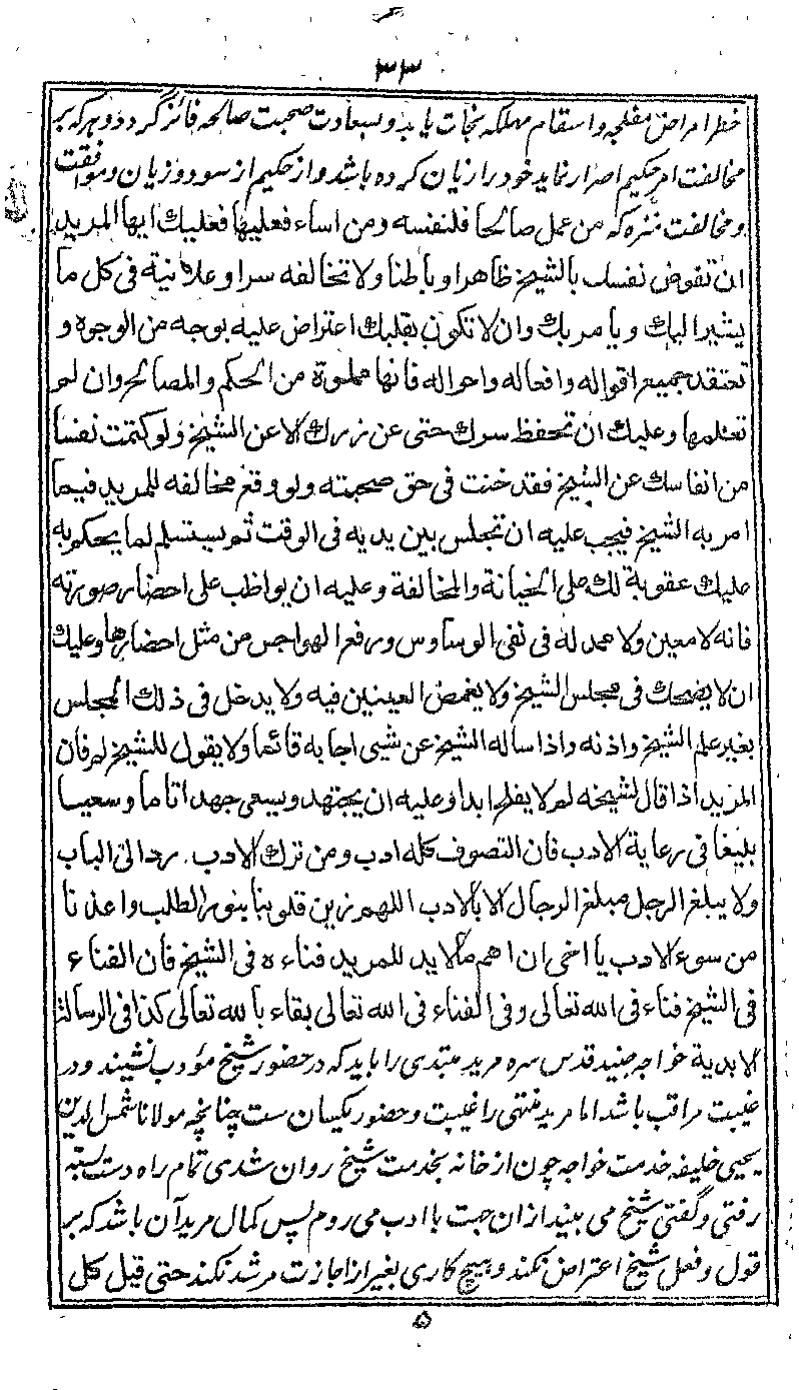 ۳۳
خطر امراض مفلجه و اسقام مهلکه نجات یابد و بسعادت صحبت صالحه فائز گردد و هرکه بر
مخالفت امر حکیم اصرار نماید خود را زیان کرده باشد و از حکیم از سود و زیان و موافقت
و مخالفت منزه که من عمل صالحا فلنفسه ومن اساء فعلیها فعلیك ایها المرید
ان تفوض نفسك بالشیخ ظاهرا و باطنا ولا تخالفه سرا وعلانیة فی کل ما
یشیر الیك و یأمر بك وان لا تکون بقلبك اعتراض علیه بوجه من الوجوه و
تعتقد جمیع اقواله وافعاله واحواله فانها مملوة من الحکم والمصالح وان لم
تعلمها وعلیك ان تحفظ سرك حتی عن زرك الا عن الشیخ ولو کتمت نفسا
من انفاسك عن الشیخ فقد خنت فی حق صحبته ولو وقع مخالفه للمرید فیما
امر به الشیخ فیجب علیه ان تجلس بین یدیه فی الوقت ثم یستسلم لما یحکم به
علیك عقوبة لك علی الخیانة والمخالفة وعلیه ان یواظب علی احضار صورته
فانه لا معین ولا ممد له فی نفی الوساوس ورفع الهواجس من مثل احضارها وعلیك
ان لا یضحك فی مجلس الشیخ ولا یغمض العینین فیه ولا یدخل فی ذلك المجلس
بغیر علم الشیخ واذنه واذا ساله الشیخ عن شیی اجابه قائما ولا یقول للشیخ لم فان
المرید اذا قال لشیخه لم لا یفلح ابدا وعلیه ان یجتهد ویسعی جهدا تاما وسعیا
بلیغا فی رعایة الادب فان التصوف کله ادب ومن ترك الادب رد الی الباب
ولا یبلغ الرجل مبلغ الرجال الا بالادب اللهم زین قلوبنا بنور الطلب واعذنا
من سوء الادب یا اخی ان اهم مالابد للمرید فناءه فی الشیخ فان الفناء
فی الشیخ فناء فی الله تعالی وفی الفناء فی الله تعالی بقاء بالله تعالی کذا فی الرسالة
الابدیة خواجه جنید قدس سره مرید مبتدی را باید که در حضور شیخ مؤدب نشیند و در
غیبت مراقب باشد اما مرید منتهی را غیبت و حضور یکسان ست چنانچه مولانا شمس الدین
یحیی خلیفه خدمت خواجه چون از خانه بخدمت شیخ روان شدی تمام راه دست بسته
رفتی و گفتی شیخ می بیند ازان جهت با ادب می روم پس کمال مرید آن باشد که بر
قول و فعل شیخ اعتراض نکند و هیچ کاری بغیر از اجازت مرشد نکند حتی قیل کل
۵